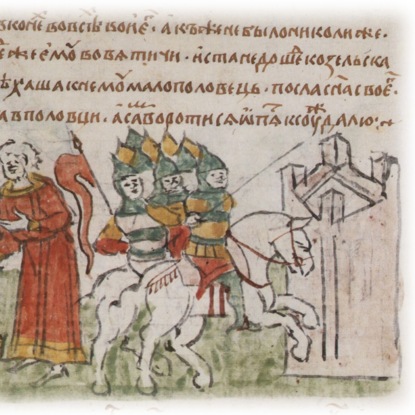 в коне во всѣ вои еⷢ · а къ же не было николи же ·
же емоу во вѧтичи · и ста не доше козельска
ѣхаша к немоу мало половець · посла сн҃а своеⷢ ·
а в половци · а саⷨ воротисѧ ѿпѧⷮ к соуⷤдалю ·